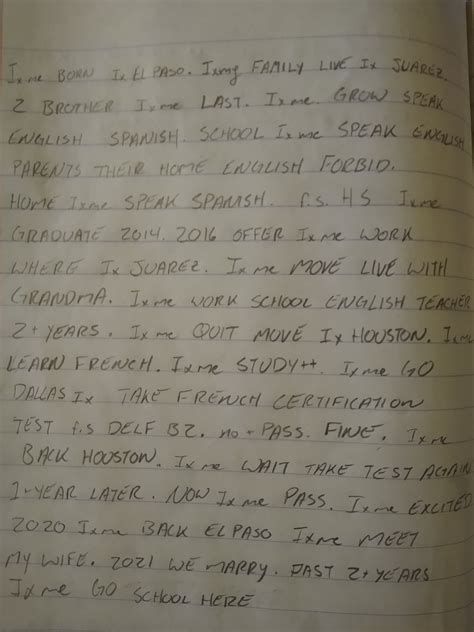 Ix me BORN Ix EL PASO. Ix my FAMILY LIVE Ix JUAREZ.
2 BROTHER Ix me LAST. Ix me. GROW SPEAK
ENGLISH SPANISH. SCHOOL Ix me SPEAK ENGLISH
PARENTS THEIR HOME ENGLISH FORBID.
HOME Ix me SPEAK SPANISH. f.s. HS Ix me
GRADUATE 2014. 2016 OFFER Ix me WORK
WHERE Ix JUAREZ. Ix me MOVE LIVE WITH
GRANDMA. Ix me WORK SCHOOL ENGLISH TEACHER
2+ YEARS. Ix me QUIT MOVE Ix HOUSTON. Ix me
LEARN FRENCH. Ix me STUDY++. Ix me GO
DALLAS Ix TAKE FRENCH CERTIFICATION
TEST f.s DELF B2. no - PASS. FINE. Ix me
BACK HOUSTON. Ix me WAIT TAKE TEST AGAIN
1-YEAR LATER. NOW Ix me PASS. Ix me EXCITED
2020 Ix me BACK EL PASO Ix me MEET
MY WIFE. 2021 WE MARRY. PAST 2+ YEARS
Ix me GO SCHOOL HERE